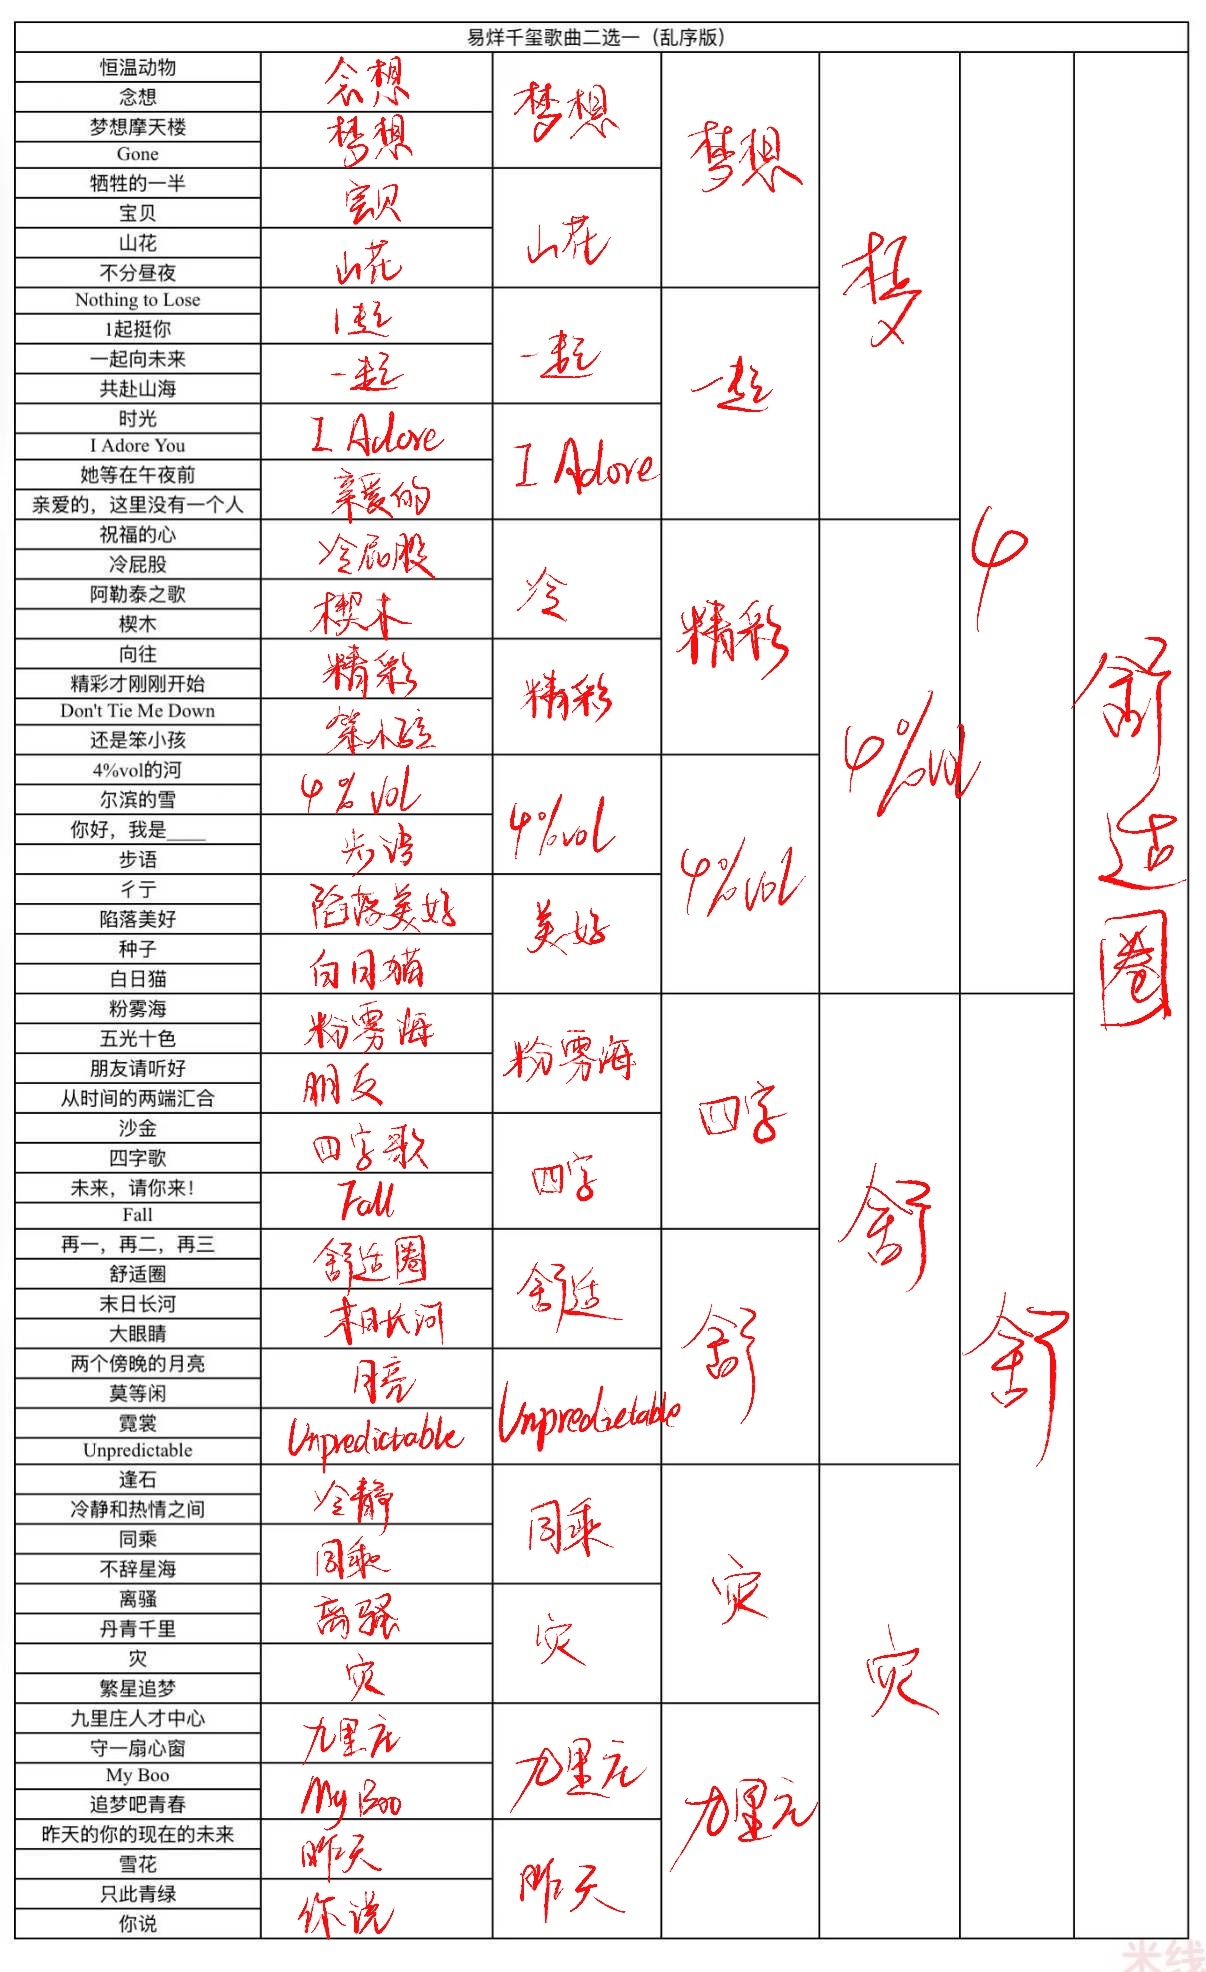 易烊千玺歌曲二选一（乱序版）
恒温动物
念想
梦想摩天楼
Gone
牺牲的一半
宝贝
山花
不分昼夜
Nothing to Lose
1起挺你
一起向未来
共赴山海
时光
I Adore You
她等在午夜前
亲爱的，这里没有一个人
祝福的心
冷屁股
阿勒泰之歌
楔木
向往
精彩才刚刚开始
Don't Tie Me Down
还是笨小孩
4%vol的河
尔滨的雪
你好，我是____
步语
彳亍
陷落美好
种子
白日猫
粉雾海
五光十色
朋友请听好
从时间的两端汇合
沙金
四字歌
未来，请你来！
Fall
再一，再二，再三
舒适圈
末日长河
大眼睛
两个傍晚的月亮
莫等闲
霓裳
Unpredictable
逢石
冷静和热情之间
同乘
不辞星海
离骚
丹青千里
灾
繁星追梦
九里庄人才中心
守一扇心窗
My Boo
追梦吧青春
昨天的你的现在的未来
雪花
只此青绿
你说
念想
梦想
宝贝
山花
1起
一起
I Adore
亲爱的
冷屁股
楔木
精彩
笨小孩
4%vol
步语
陷落美好
白日猫
粉雾海
朋友
四字歌
Fall
舒适圈
末日长河
月亮
Unpredictable
冷静
同乘
离骚
灾
九里庄
My Boo
昨天
你说
梦想
山花
一起
I Adore
冷
精彩
4%vol
美好
粉雾海
四字
舒适
Unpredictable
同乘
灾
九里庄
昨天
梦想
一起
精彩
4%vol
四字
舒
灾
九里庄
梦
4%vol
舒
灾
4
舒
舒适圈
米线